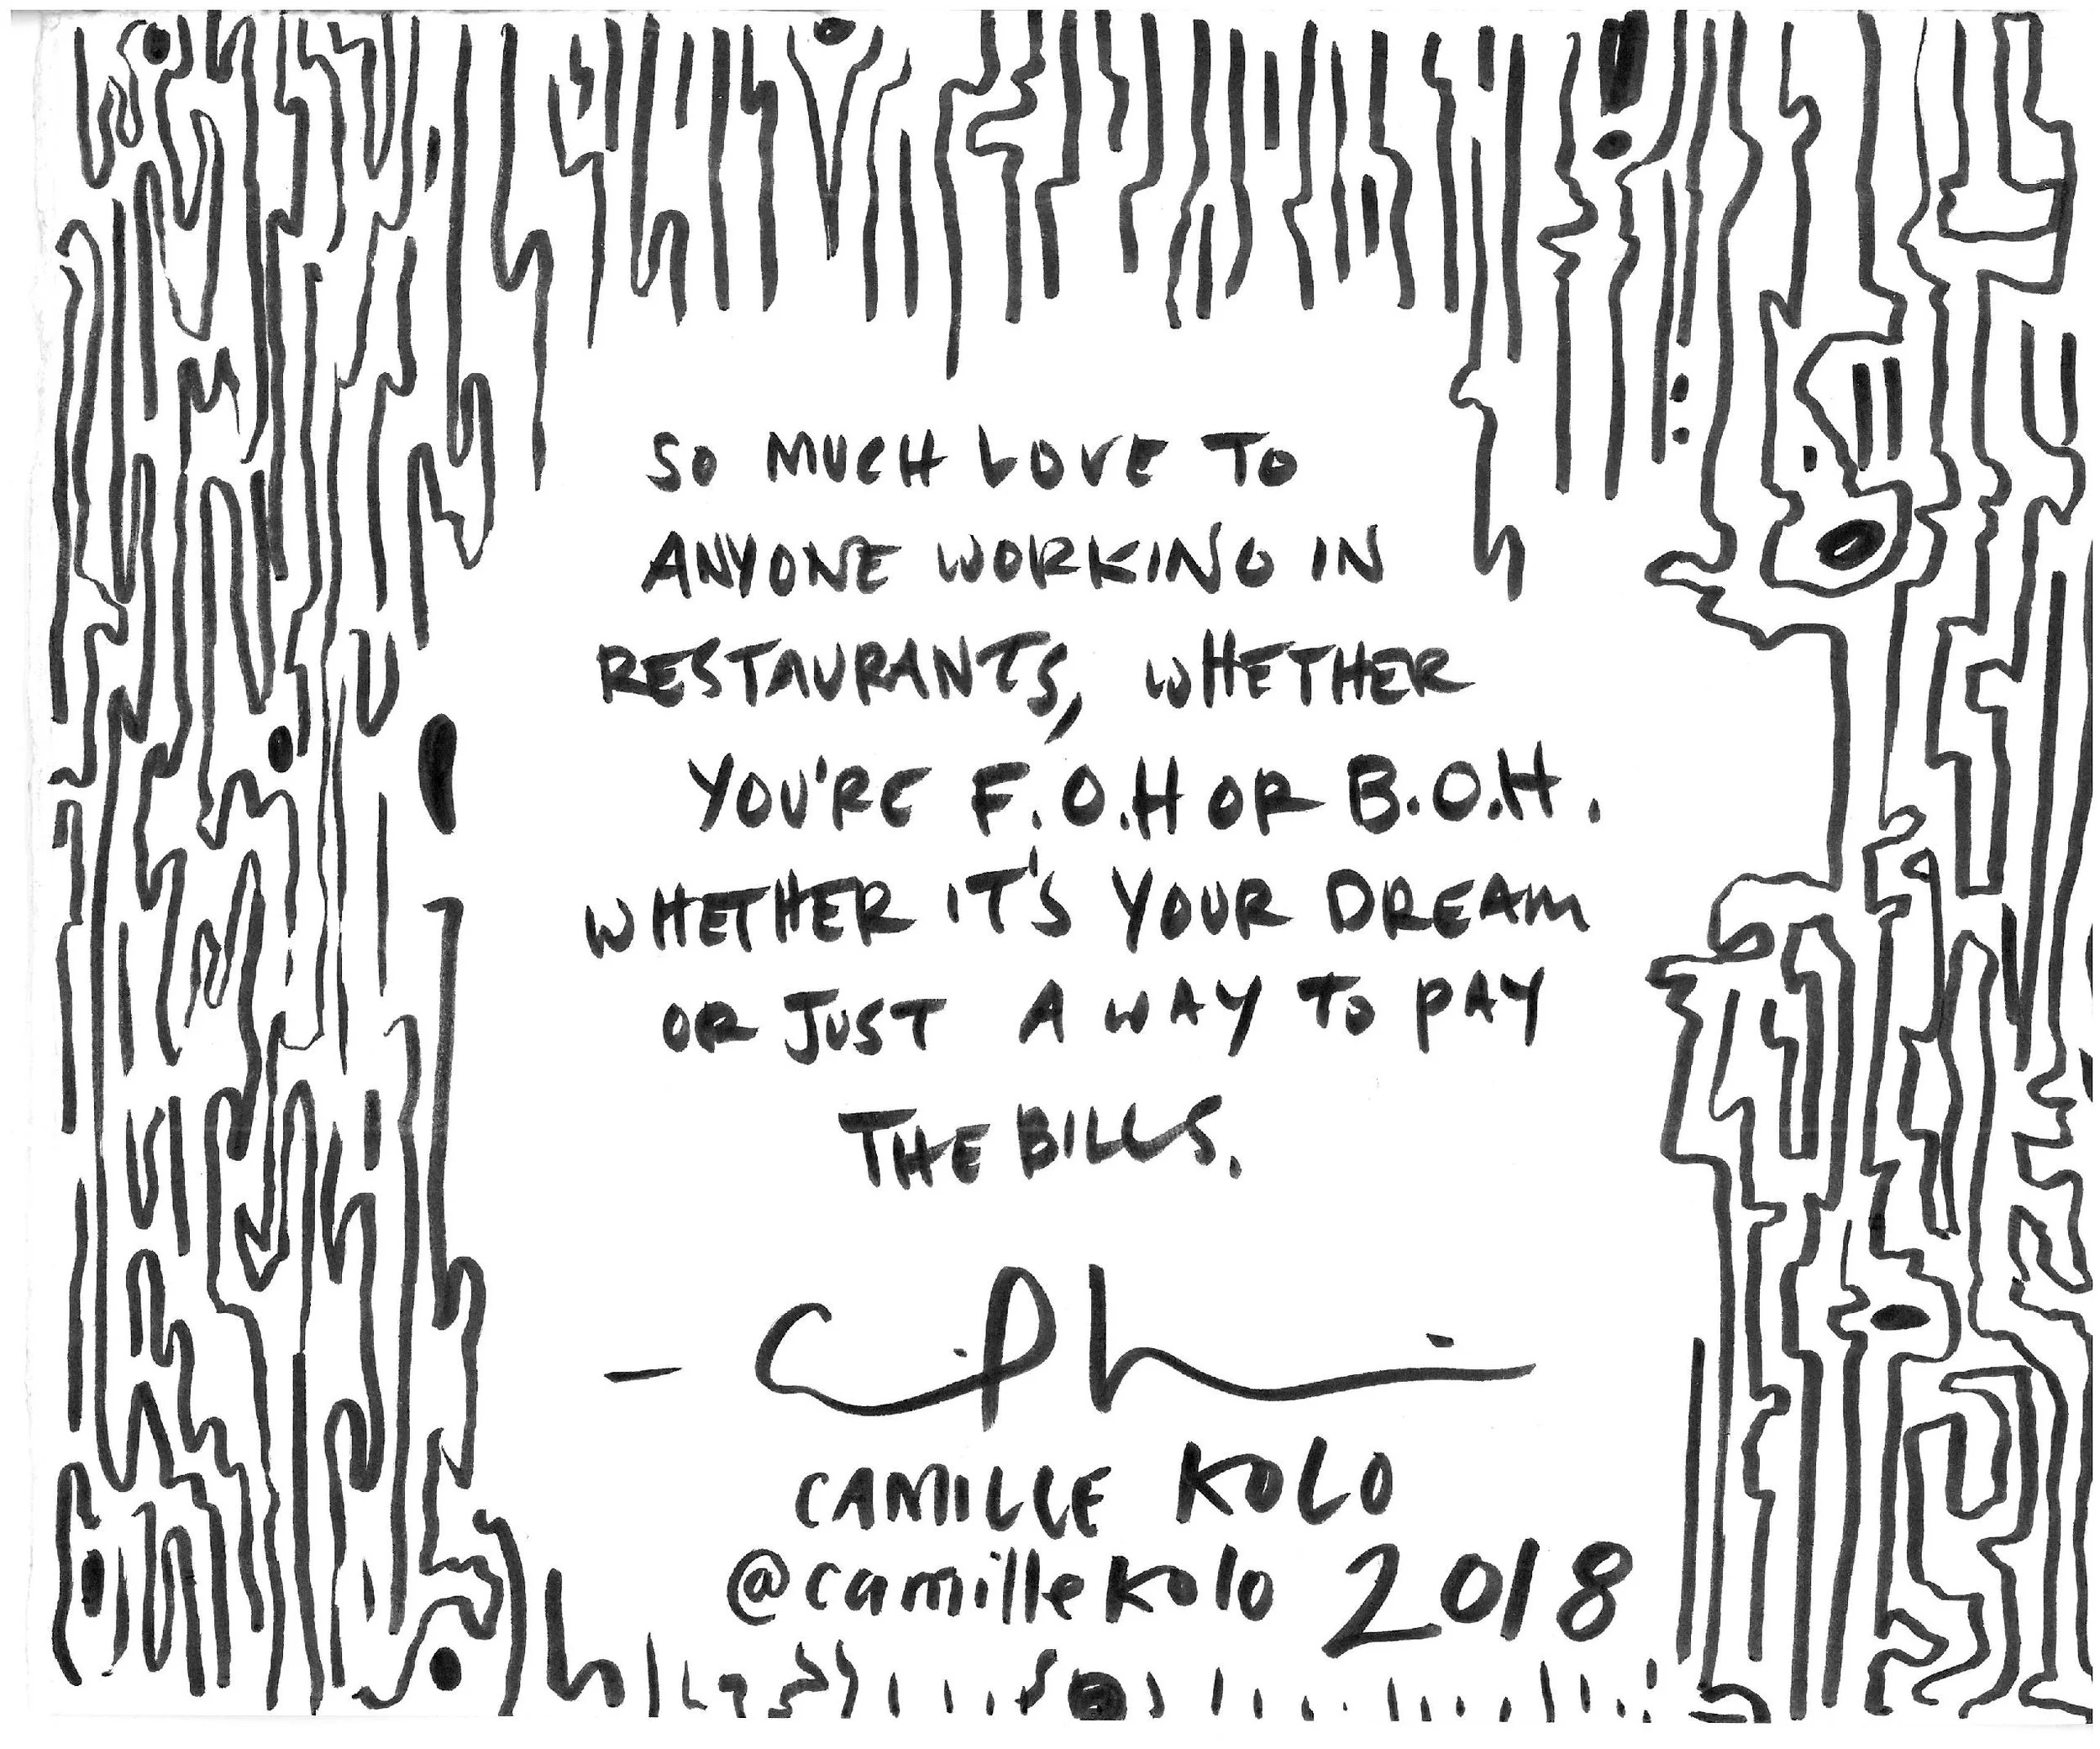 SO MUCH LOVE TO
ANYONE WORKING IN
RESTAURANTS, WHETHER
YOU'RE F.O.H OR B.O.H.
WHETHER IT'S YOUR DREAM
OR JUST A WAY TO PAY
THE BILLS.
CAMILLE KOLO
@camillekolo 2018